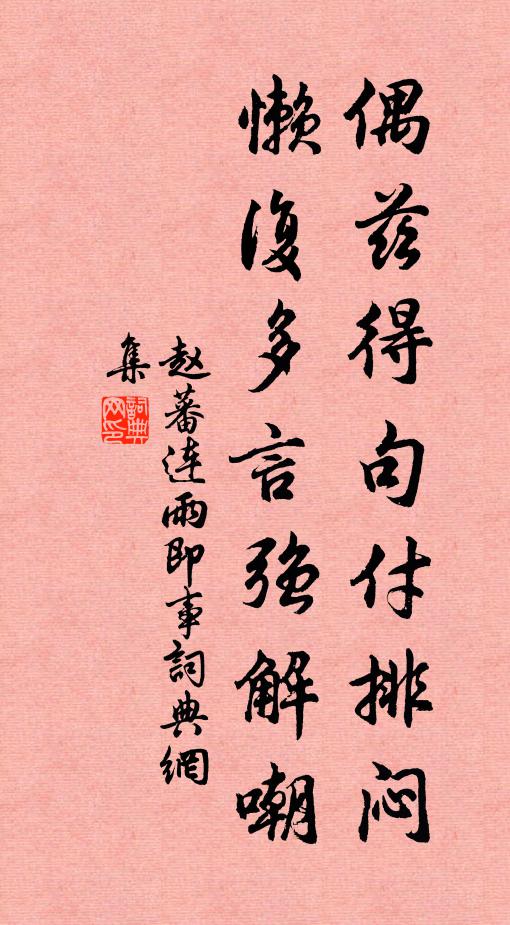 偶兹得句付排闷
懒复多言强解嘲
赵蕃连雨即事词典網
集
詞典网印